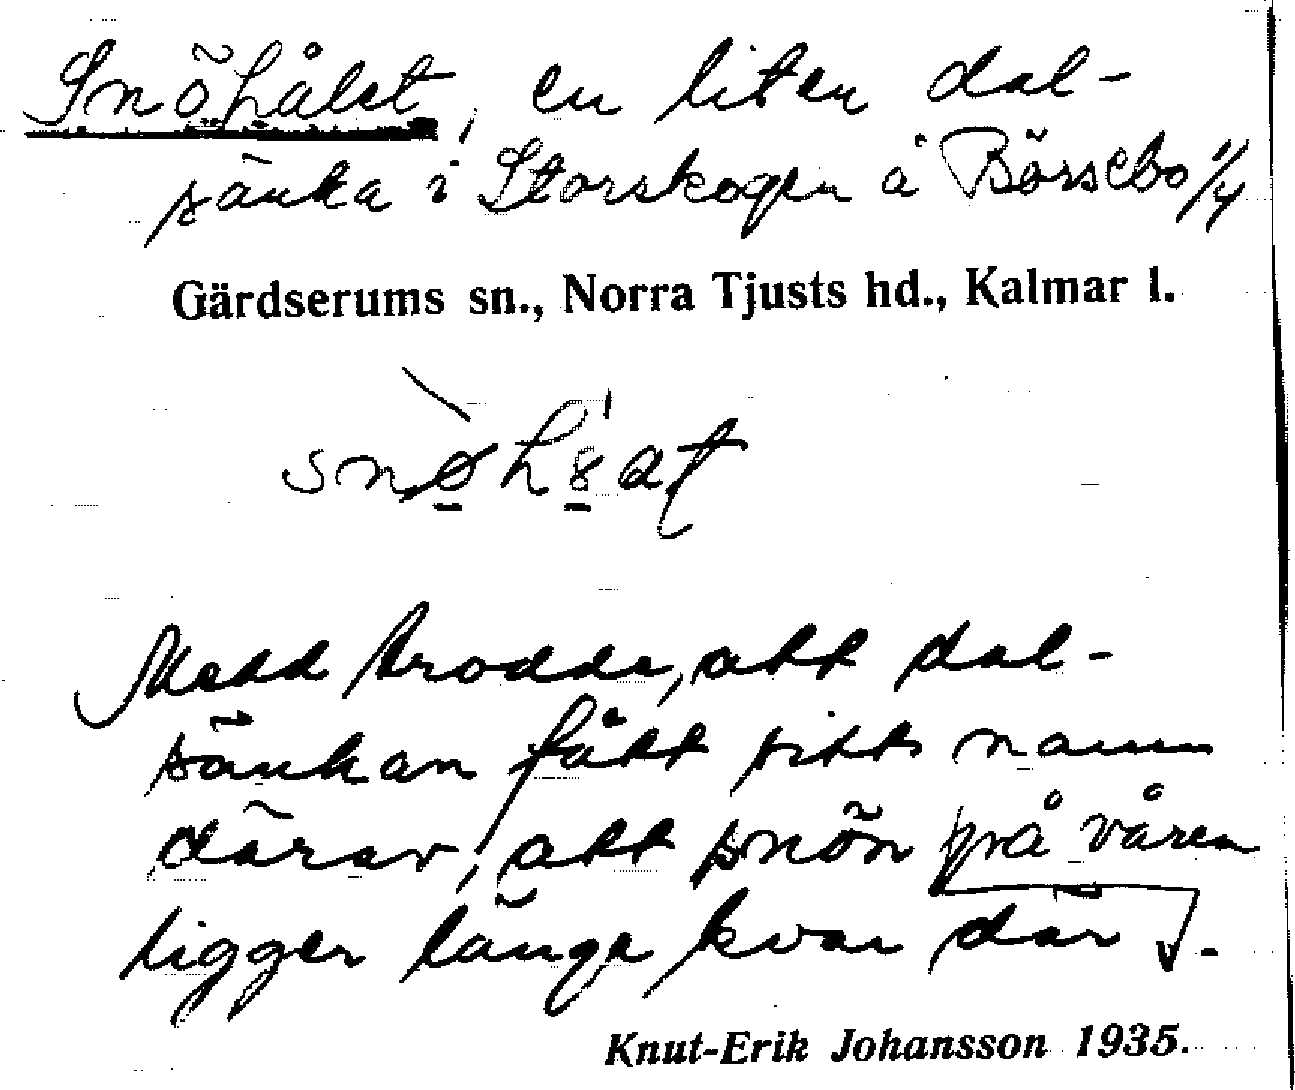 Snöhålet, en liten dal-
sänka i Storskogen å Börsebo 1/4
Gärdserums sn., Norra Tjusts hd., Kalmar l.
Medd trodde, att dal-
sänkan fått sitt namn
därav, att snön på våren
ligger länge kvar där.
Knut-Erik Johansson 1935.